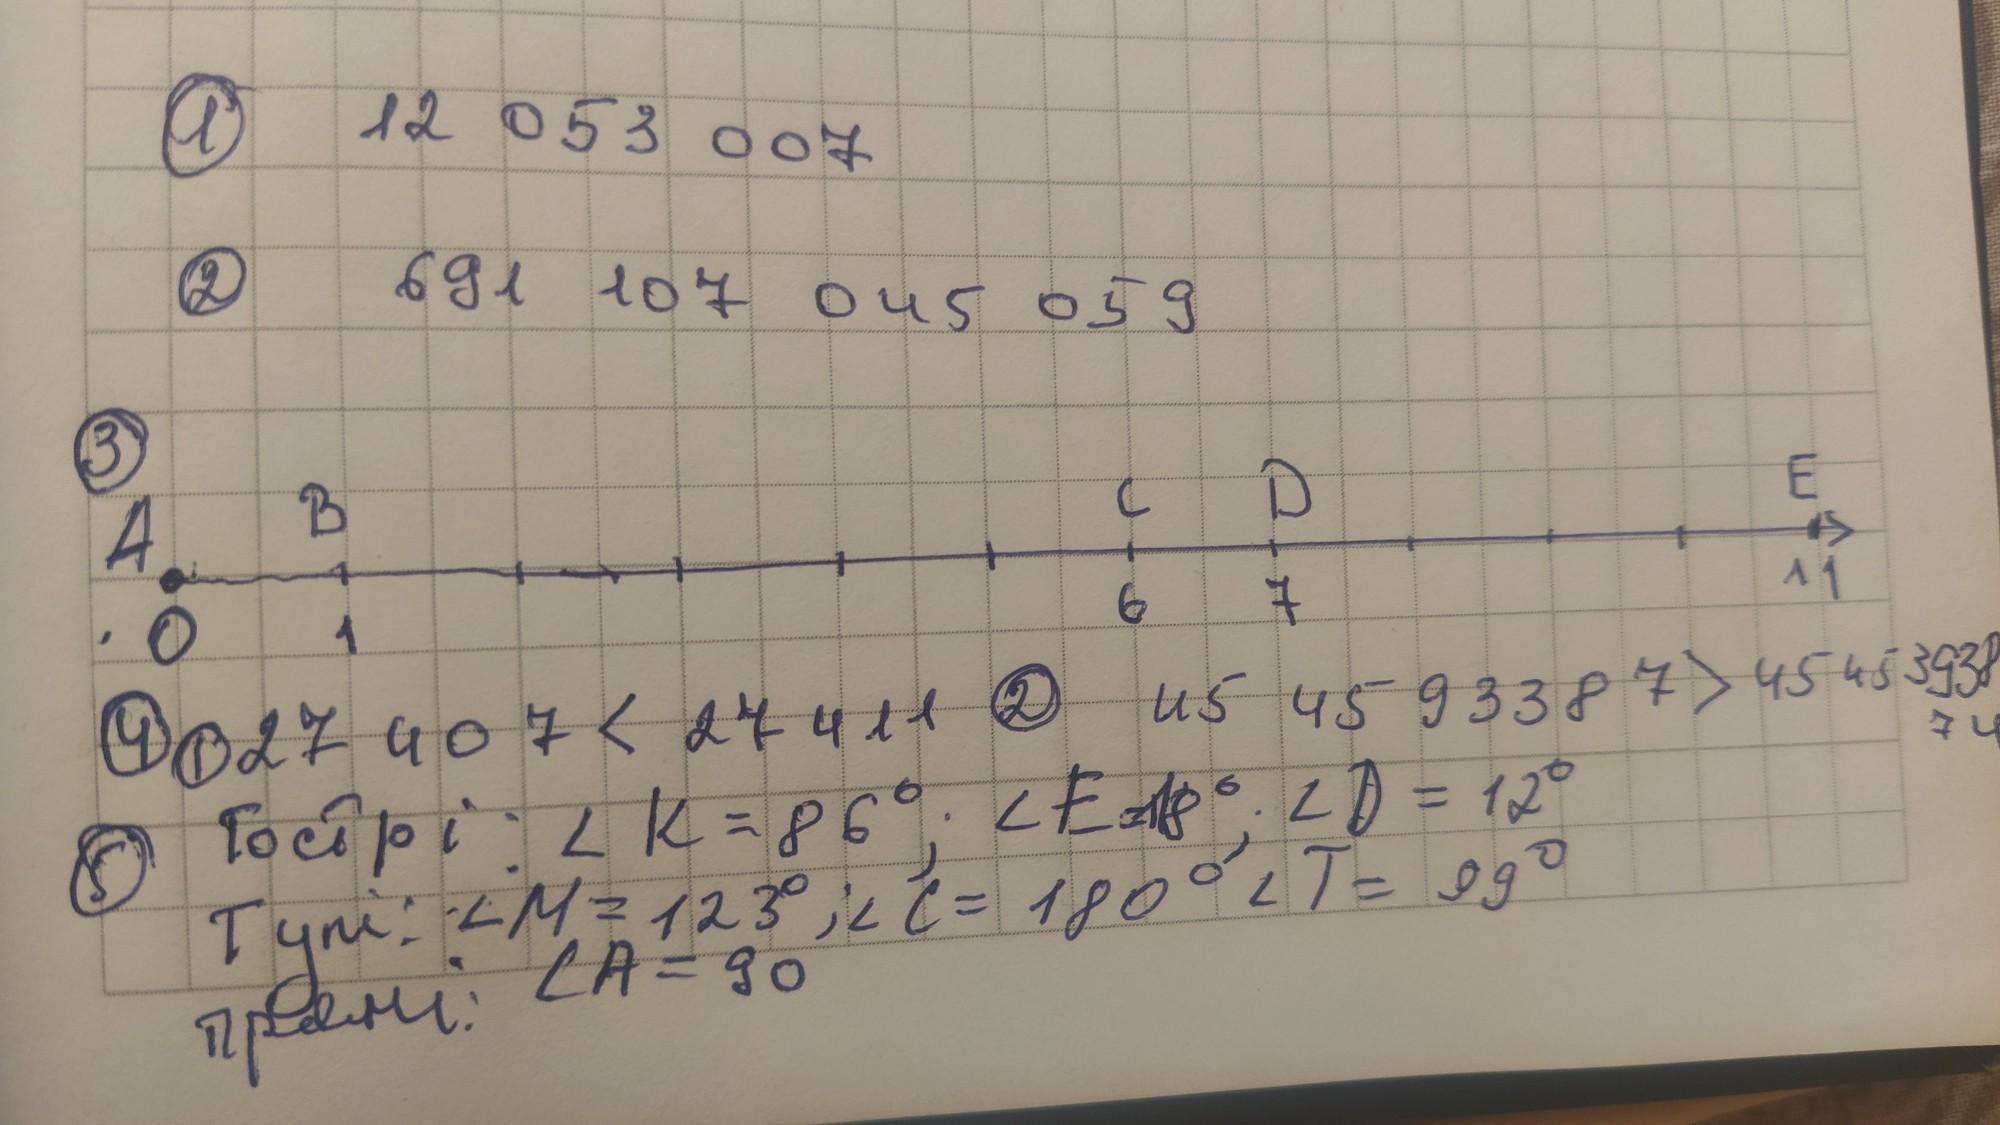 ① 12 053 007
② 691 107 045 059
③
A B C D E
0 1 6 7 11
④ ① 27 407 < 27 411 ② 45 45 9 3 3 8 7 > 45 45 3938
74
⑤ Гострі: ∠K = 86°; ∠E = 18°; ∠D = 12°
Тупі: ∠M = 123°; ∠C = 180° ∠T = 99°
прямі: ∠A = 90